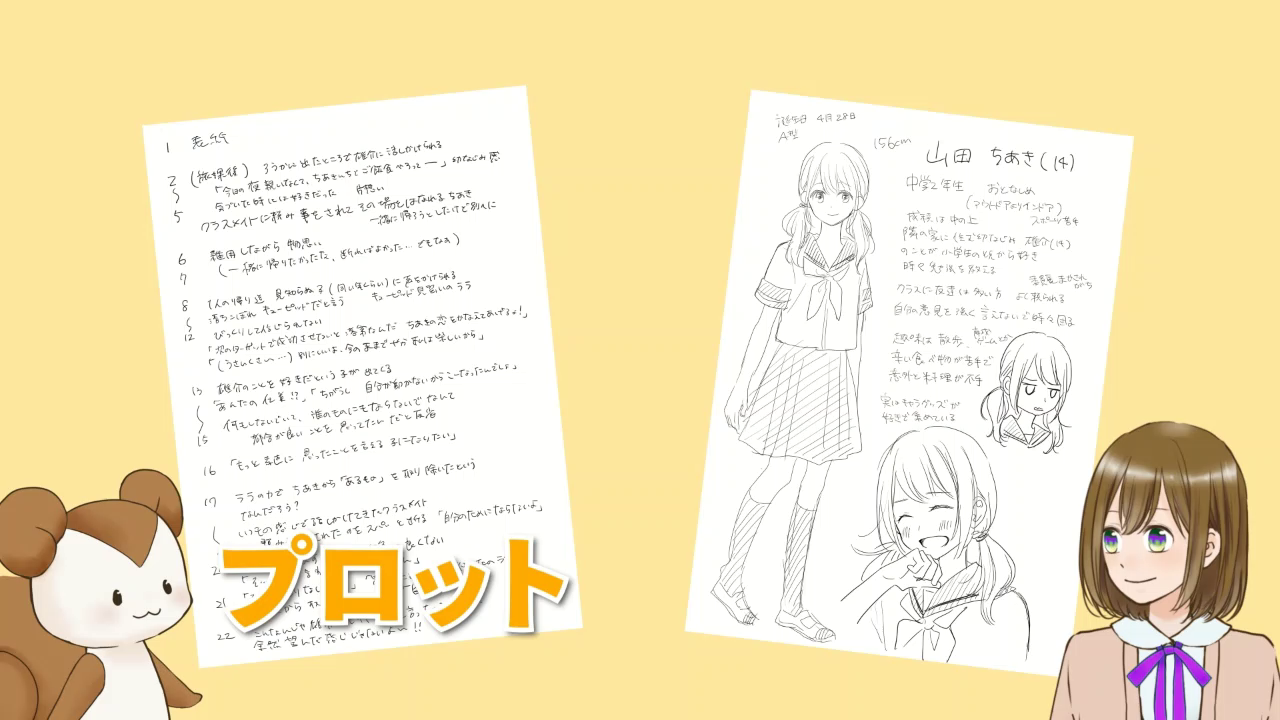 1 表紙
2 (放課後) ろうかに出たところで雄介に話しかけられる
「今日の夜親いなくて、ちあきんちとご飯食べやろってー」幼なじみ
気づいた時には好きだった 片想い
5 クラスメイトに頼み事をされてその場をはなれるちあき
一緒に帰ろうとしたけど別々に
6 雑用しながら物思い
7 (一緒に帰りたかったな、断ればよかった…でもなぁ)
8 1人の帰り道 見知らぬ子(同い年くらい)に声をかけられる
落ちこぼれキューピッドだと言う キューピッド見習いのララ
12 びっくりして信じられない
「次のターゲットで成功させないと落第なんだ ちあきの恋をかなえてあげるよ!」
「(うさんくさ…)別にいいよ、今のままでやか私は楽しいから」
13 雄介のことを好きだという子が出てくる
「あんたの仕業!?」「ちがうし 自分が動かないからこーなったんでしょ」
何もしないでいて、誰のものにもならないでなんて
15 都合が良いことを思ってたんだと反省
16 「もっと素直に思ったことを言える子になりたい」
17 ララの力でちあきから「あるもの」を取り除いたという
なんだろう?
いつもの感じで話しかけてきたクラスメイト
「自分のためにならないよ」
22
全然望んだ感じじゃないよ〜!!
プロット
誕生日 4月28日
A型
156cm
山田 ちあき(14)
中学2年生 おとなしめ
(アウトドアよりインドア)
成績は中の上 スポーツ苦手
隣の家に住む幼なじみ 雄介(14)
のことが小学生の頃から好き
時々勉強を教える
クラスに友達は多い方 よく頼られる
自分の意見を強く言えないで時々困る
趣味は散歩、
辛い食べ物が苦手で
意外と料理が下手
実はキャラグッズが
好きで集めている